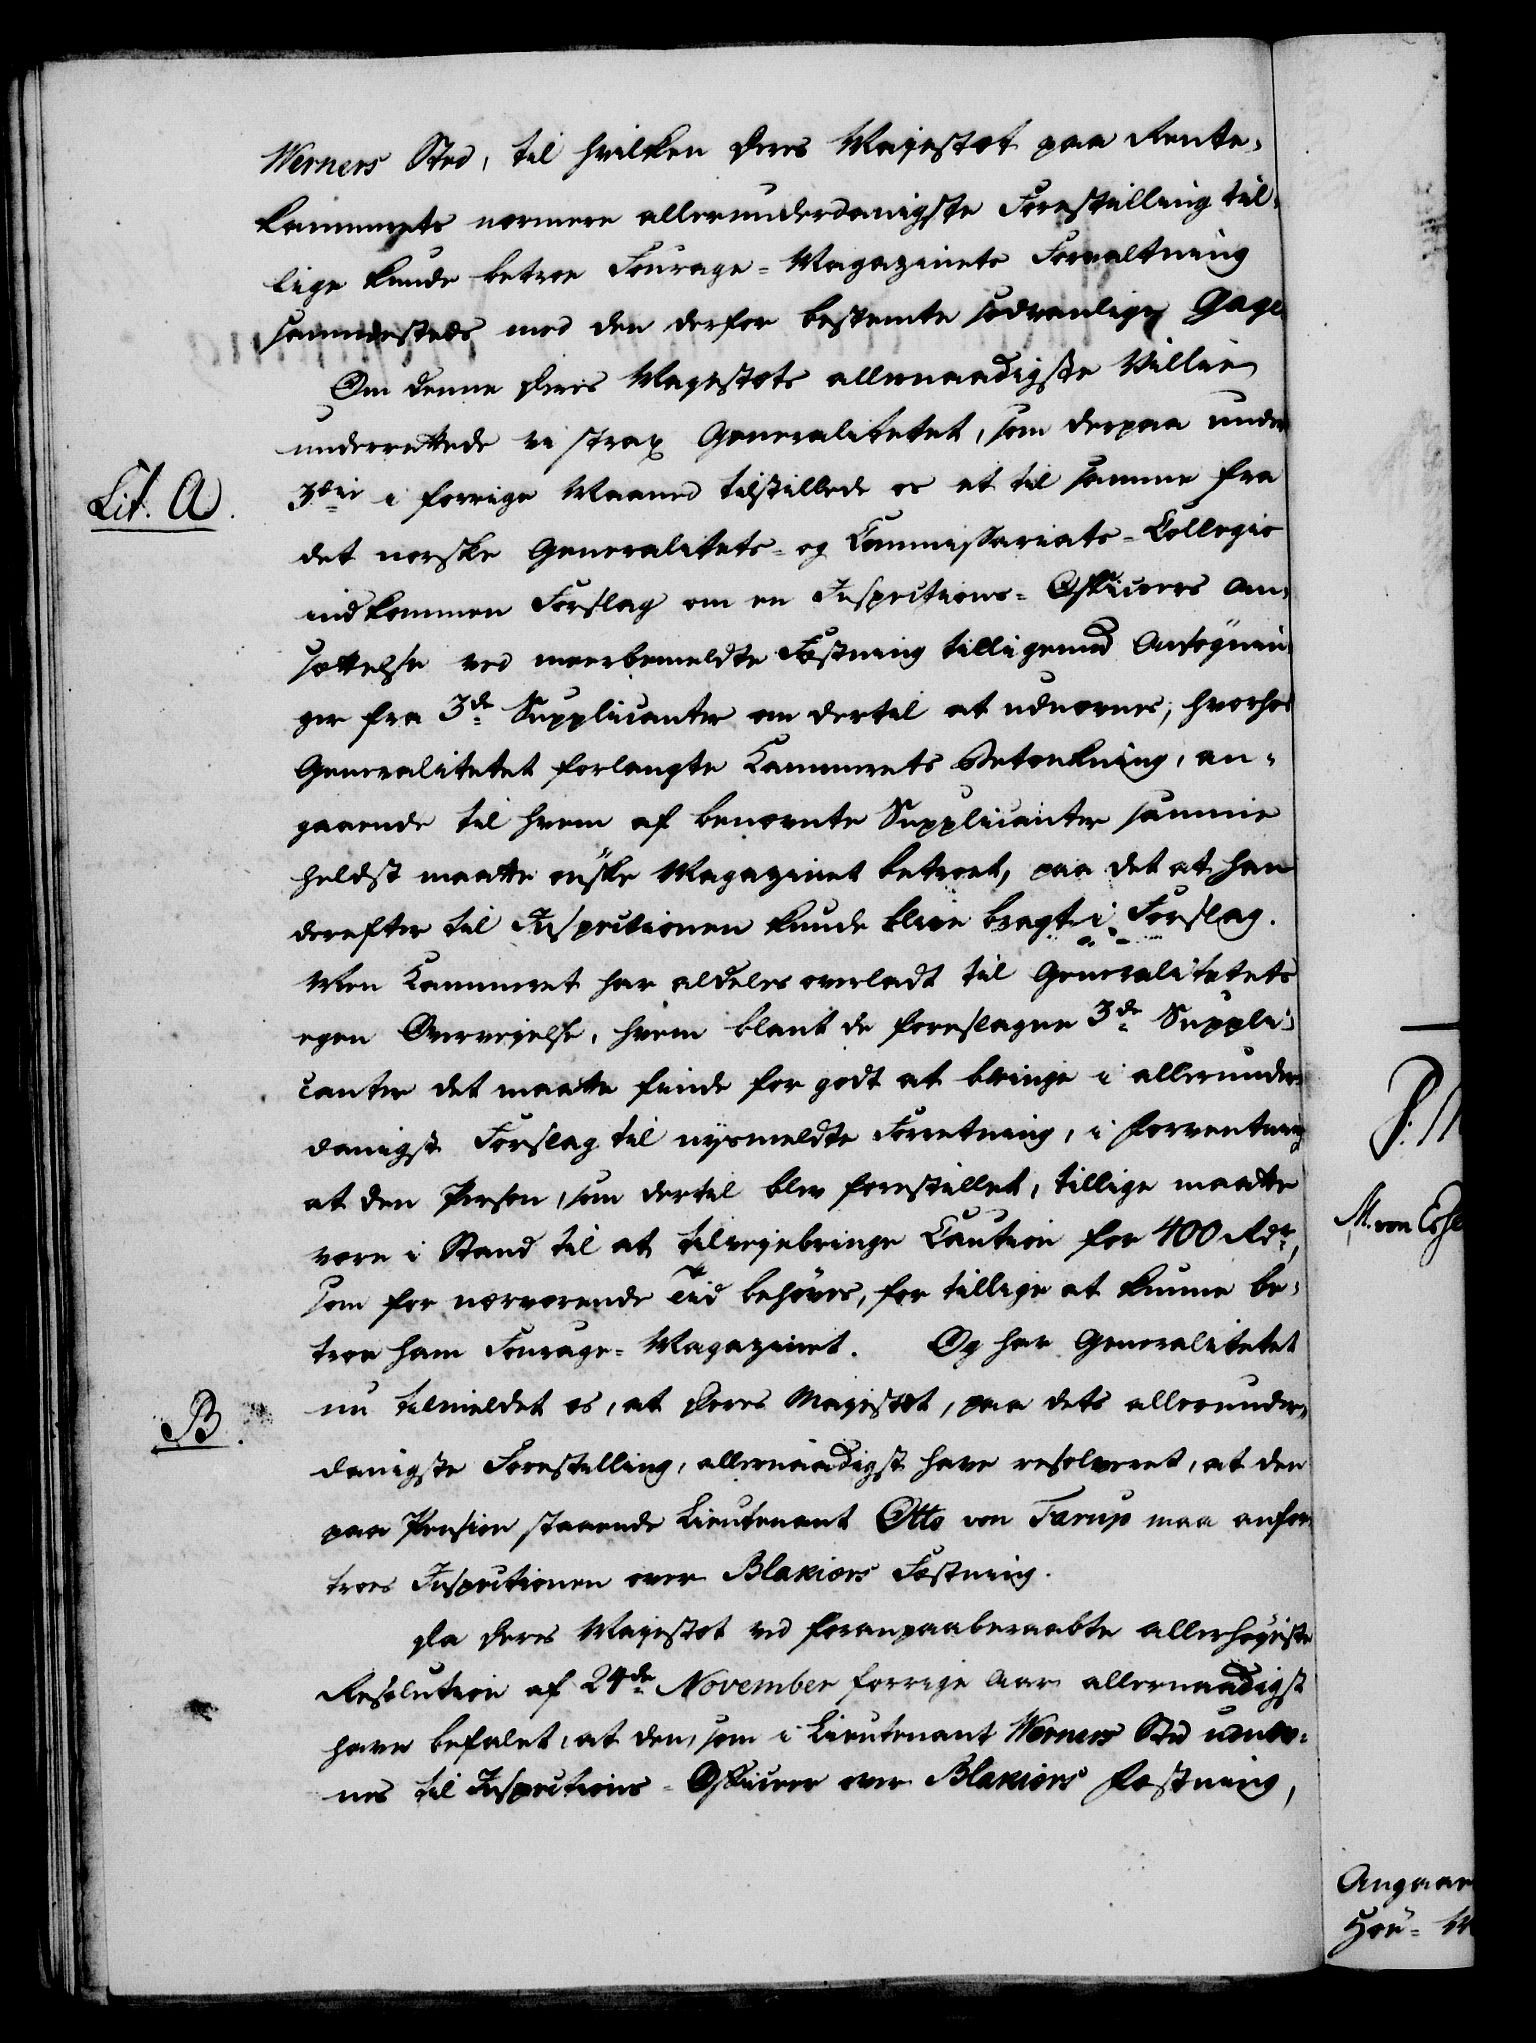 Werners Sted, til hvilken Deres Majestæt paa Rente-
kammerets nærmere allerunderdanigste Forestilling til-
lige kunde betroe Fourage-Magazinets Forvaltning
sammesteds med den derfor bestemte sædvanlige Gage
Om denne Deres Majestæts allernaadigste Villie
underrettede vi strax Generalitetet, som derpaa under
Lit. A.
3die i forrige Maaned tilstillede os et til samme fra
det norske Generalitets- og Commissariats-Collegio
indkommen Forslag om en Inspections-Officeers An-
sættelse ved meerbemeldte Fæstning tilligemed Ansøgnin-
ger fra 3de Supplicanter om dertil at udnævnes, hvorhos
Generalitetet forlangte Kammerets Betænkning, an-
gaaende til hvem af benævnte Supplicanter samme
heldst maatte ønske Magazinet betroet, paa det at han
derefter til Inspectionen kunde blive bragt i Forslag.
Men Kammeret har aldeles overladt til Generalitetets
egen Overvejelse, hvem blant de foreslagne 3de Suppli-
canter det maatte finde for godt at bringe i allerunder-
danigst Forslag til nysmeldte Forretning, i Forventning
at den Person, som dertil blev forestillet, tillige maatte
være i Stand til at tilvejebringe Caution for 400 Rdr,
som for nærværende Tid behøves, for tillige at kunne be-
troe ham Fourage-Magazinet. Og har Generalitetet
B.
nu tilmeldet os, at Deres Majestæt, paa dets allerunder-
danigste Forestilling, allernaadigst have resolveret, at den
paa Pension staaende Lieutenant Otto von Tarup maa anfor-
troes Inspectionen over Blakiers Fæstning.
Da Deres Majestæt ved foranpaaberaabte allerhøjeste
Resolution af 24de November forrige Aar allernaadigst
have befalet, at den, som i Lieutenant Werners Sted udnæv-
nes til Inspections-Officeer over Blakiers Fæstning,
M. von Esse
Angaae